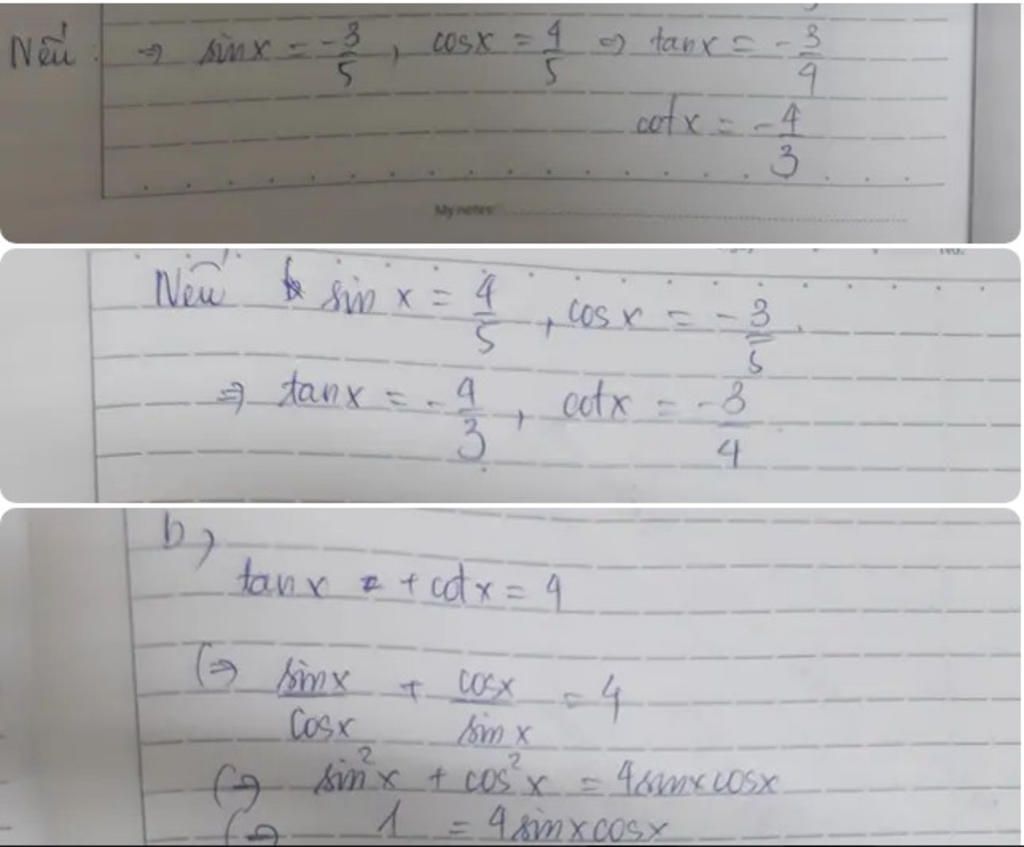 Nếu: ⇒ sinx = -3/5, cosx = 4/5 ⇒ tanx = -3/4
cotx = -4/3
My notes
Nếu sin x = 4/5, cosx = -3/5.
⇒ tanx = -4/3, cotx = -3/4
b,
tanx + cotx = 4
(⇒ sinx/cosx + cosx/sinx = 4
(⇒ sin²x + cos²x = 4sinxcosx
(⇒ 1 = 4sinxcosx